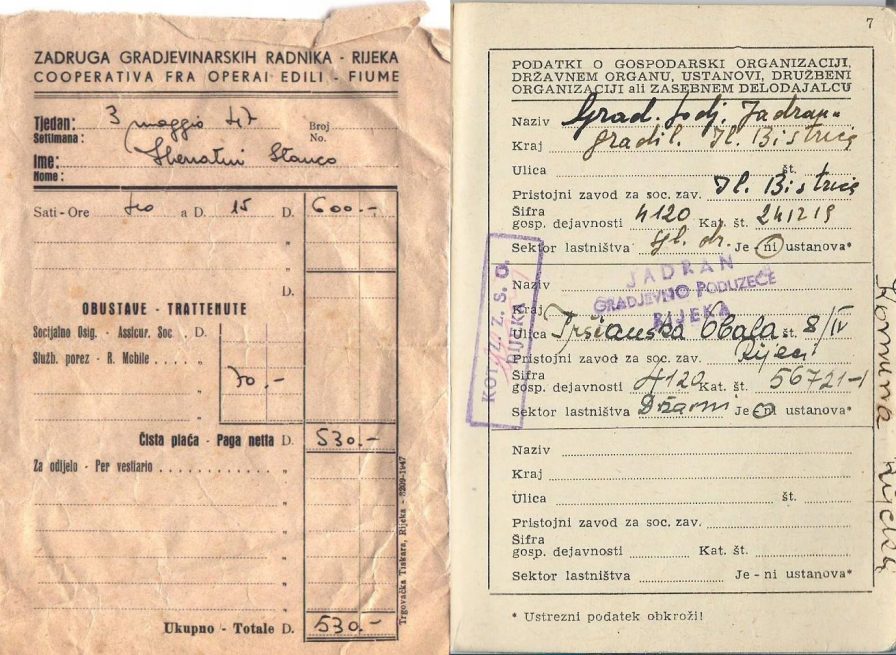 ZADRUGA GRADJEVINARSKIH RADNIKA - RIJEKA
COOPERATIVA FRA OPERAI EDILI - FIUME
Tjedan: 3 maggio 47 Broj
Settimana: No.
Ime: Stanco
Nome:
Sati - Ore a D. 15 D. 600.-
"
"
D.
OBUSTAVE - TRATTENUTE
Socijalno Osig. - Assicur. Soc. D.
Služb. porez - R. Mobile "
" 70.-
"
Čista plaća - Paga netta D. 530.-
Za odijelo - Per vestiario "
"
"
"
"
"
Ukupno - Totale D. 530.-
Trgovačka Tiskara, Rijeka - 8209-1947
7
PODATKI O GOSPODARSKI ORGANIZACIJI,
DRŽAVNEM ORGANU, USTANOVI, DRUŽBENI
ORGANIZACIJI ali ZASEBNEM DELODAJALCU
Naziv Grad. podj. Jadran-
Kraj gradil. Il. Bistrica
Ulica št.
Pristojni zavod za soc. zav. Il. Bistrica
Šifra
gosp. dejavnosti 4120 Kat. št. 241219
Sektor lastništva spl. dr. Je - ni ustanova*
Naziv
JADRAN
GRADJEVNO PODUZEĆE
RIJEKA
Kraj
Ulica Tršćanska Obala št. 8/IV
Pristojni zavod za soc. zav. Rijeci
Šifra
gosp. dejavnosti 4120 Kat. št. 56721-1
Sektor lastništva Državni Je - ni ustanova*
KOT. Z. S. O.
RIJEKA
Naziv
Kraj
Ulica št.
Pristojni zavod za soc. zav.
Šifra
gosp. dejavnosti Kat. št.
Sektor lastništva Je - ni ustanova*
* Ustrezni podatek obkroži!
Komuna Rijeka